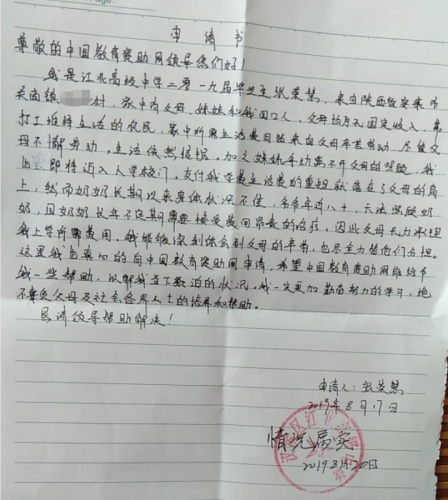 申请书
尊敬的中国教育资助网领导你们好!
我是江北高级中学二零一九届毕业生张荣慧,来自陕西临安来市
关庙镇 村,家中有父母、妹妹和我四口人,父母均为无固定收入,靠
打工维持生活的农民,家中所需生活费自然来自父母辛苦劳动,尽管父
母不懈劳动,生活依然拮据,加之妹妹年幼离不开父母的照顾,我
即将迈入大学校门,支付我学费生活费的重担就落在了父母的肩
上,然而奶奶长期以来身体状况不佳,爷爷年近八十,无法照顾奶
奶,且奶奶长年不定期需要接受费用昂贵的治疗,因此父母无力承担
我上学所需费用。我能够深刻体会到父母的辛苦,也尽全力替他们分担。
这里我也衷心的向中国教育资助网申请,希望中国教育资助网能给予
我一些帮助,以解我当下救迫的状况,我一定更加勤奋努力的学习,绝
不辜负父母及社会各界人士的培养和帮助。
恳请领导帮助解决!
申请人:张荣慧
2019年8月17日
情况属实
2019.8月20日